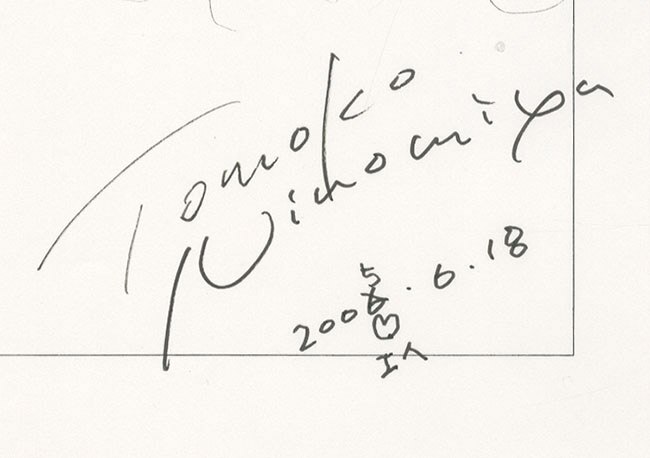 Tomoko
Ninomiya
2005.6.18
♡
エヘ